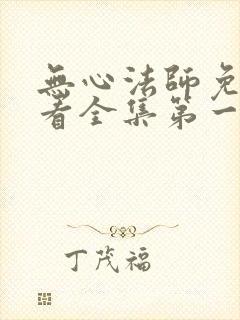 無心法師免
看全集第一
丁茂福